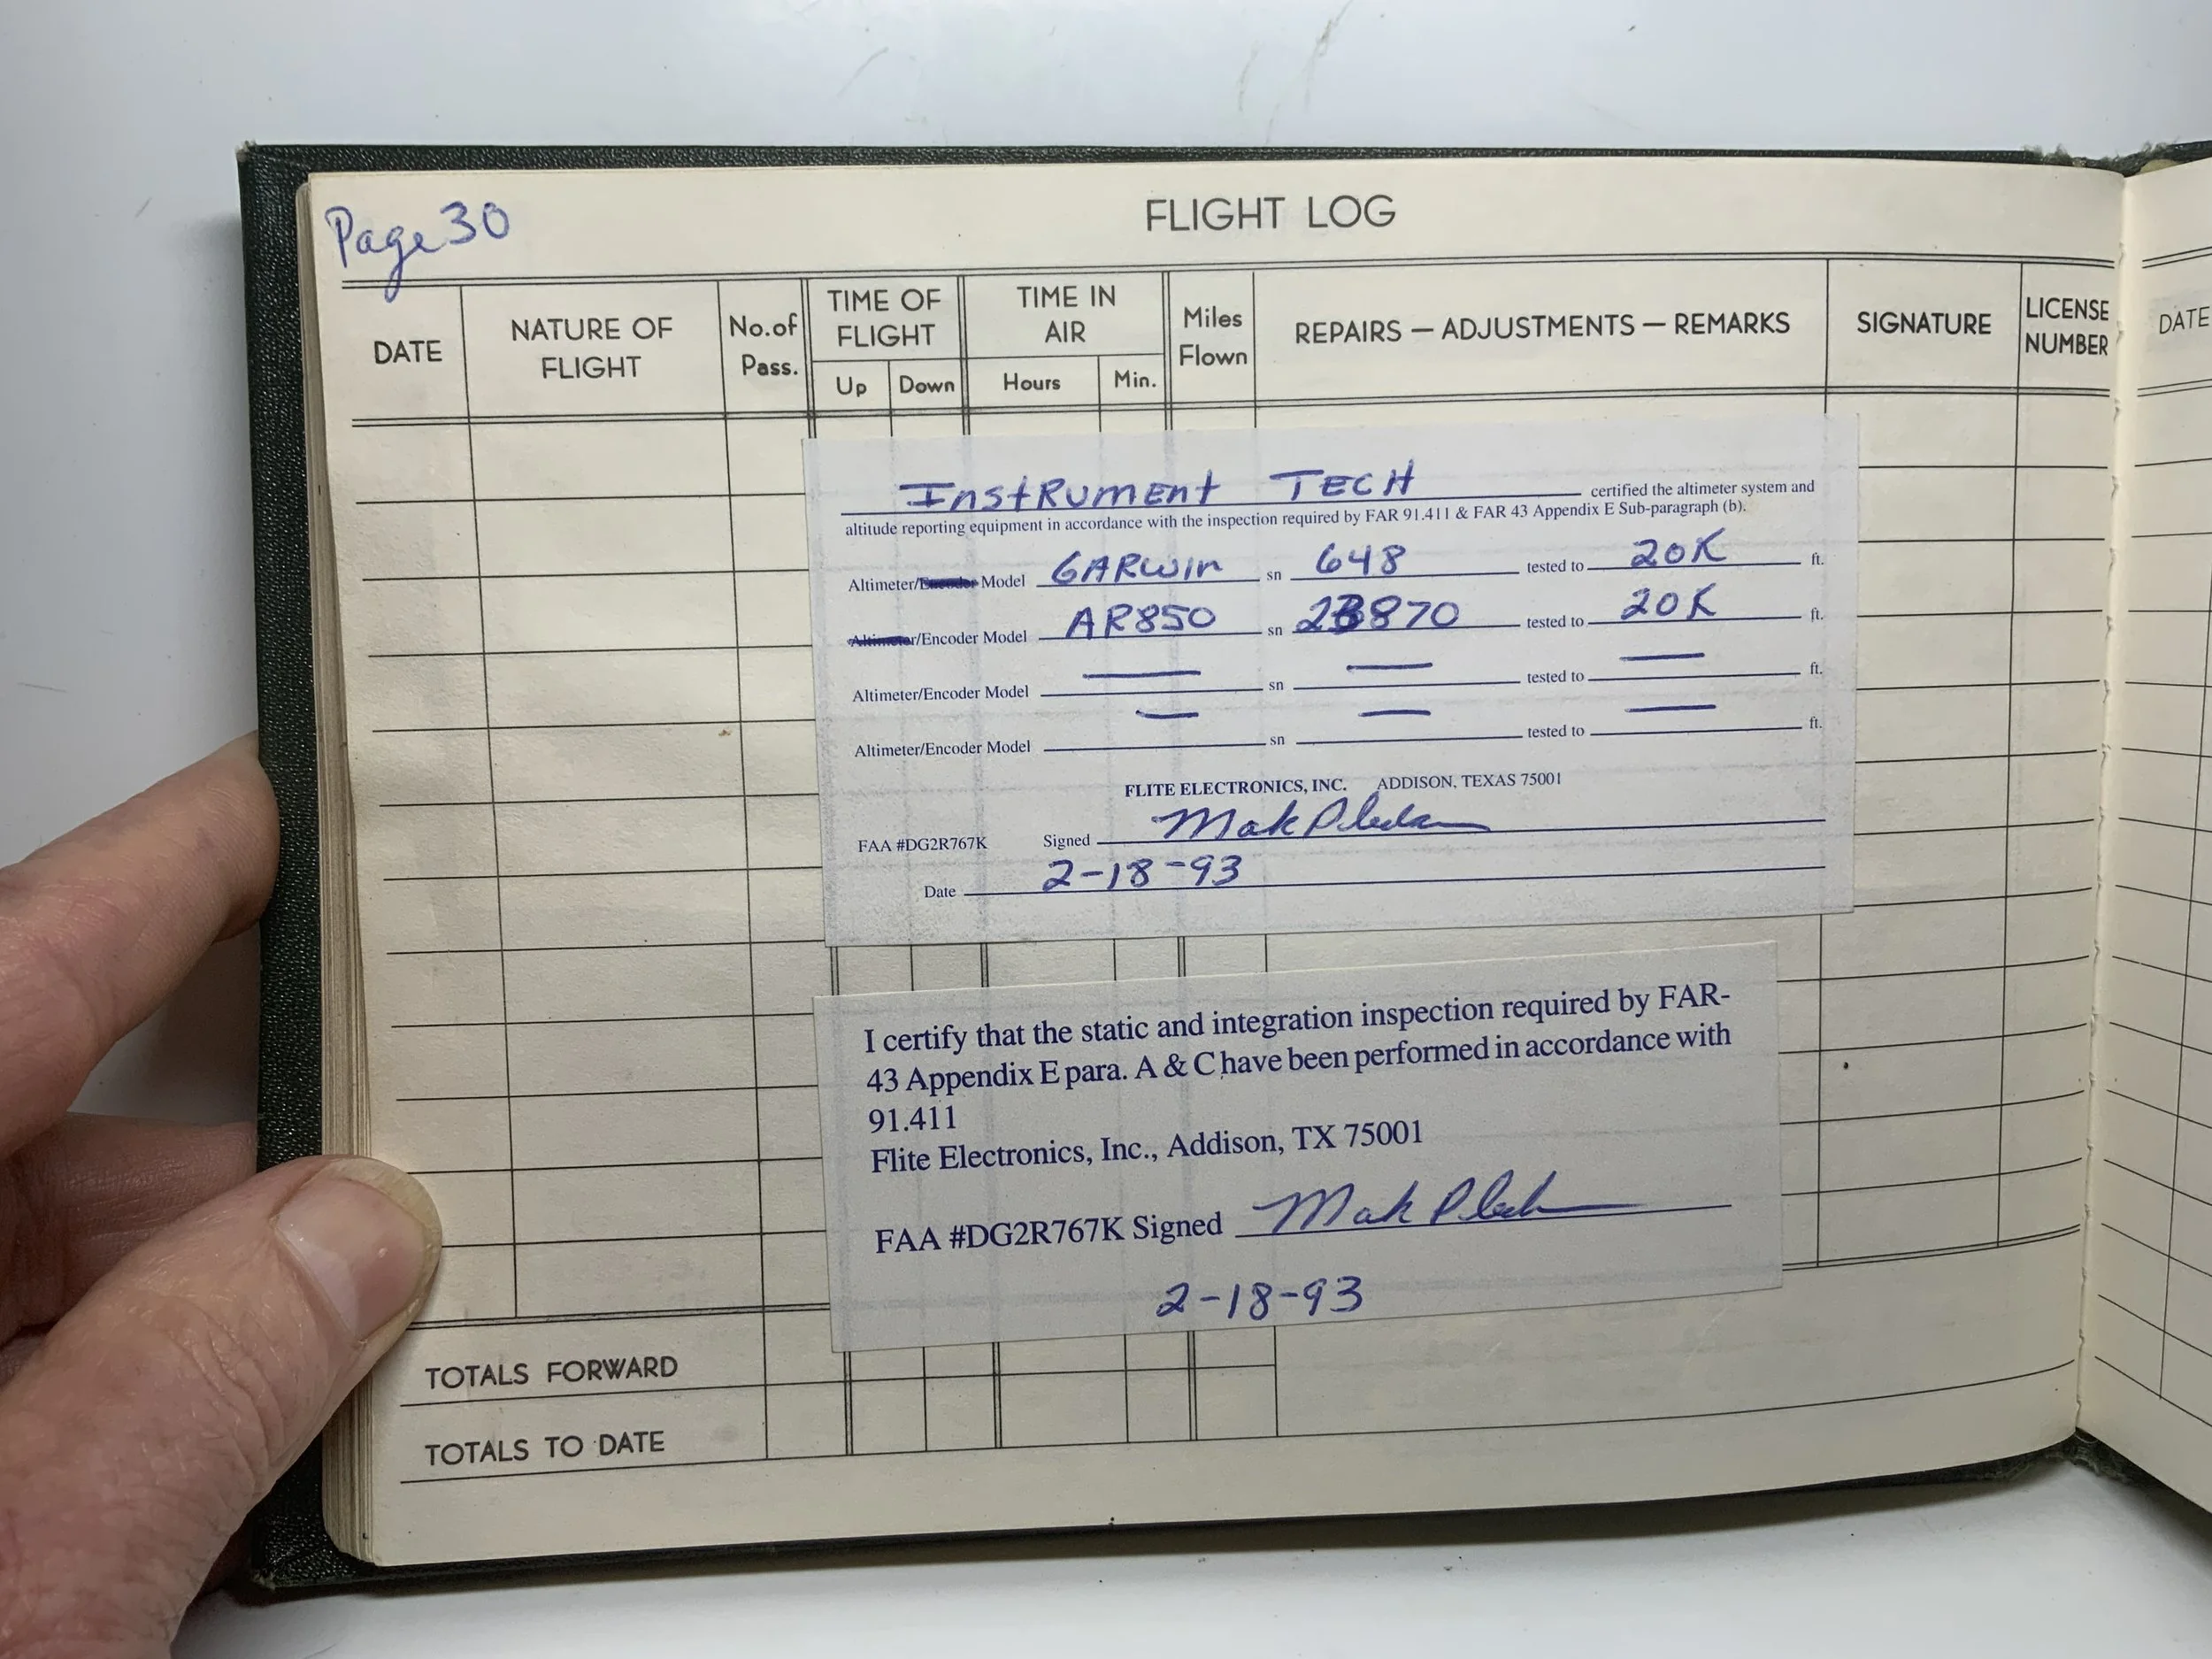 Page 30
FLIGHT LOG
DATE
NATURE OF FLIGHT
No. of Pass.
TIME OF FLIGHT
Up Down
TIME IN AIR
Hours Min.
Miles Flown
REPAIRS — ADJUSTMENTS — REMARKS
SIGNATURE
LICENSE NUMBER
DATE
InstRument TECH certified the altimeter system and
altitude reporting equipment in accordance with the inspection required by FAR 91.411 & FAR 43 Appendix E Sub-paragraph (b).
Altimeter/Encoder Model GARWin sn 648 tested to 20K ft.
Altimeter/Encoder Model AR850 sn 23870 tested to 20K ft.
Altimeter/Encoder Model — sn — tested to — ft.
Altimeter/Encoder Model — sn — tested to — ft.
FLITE ELECTRONICS, INC. ADDISON, TEXAS 75001
FAA #DG2R767K Signed
Date 2-18-93
I certify that the static and integration inspection required by FAR-
43 Appendix E para. A & C have been performed in accordance with
91.411
Flite Electronics, Inc., Addison, TX 75001
FAA #DG2R767K Signed
2-18-93
TOTALS FORWARD
TOTALS TO DATE